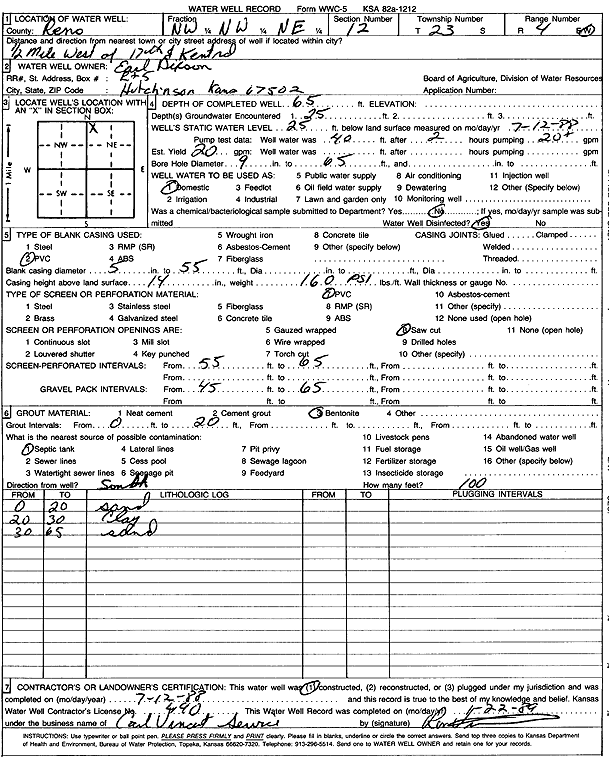 WATER WELL RECORD Form WWC-5 KSA 82a-1212
1 LOCATION OF WATER WELL: Fraction Section Number Township Number Range Number
County: Reno NW ¼ NW ¼ NE ¼ 12 T 23 S R 4 E/W
Distance and direction from nearest town or city street address of well if located within city?
½ Mile West of 17th & Kent
2 WATER WELL OWNER: Earl Dixson
RR#, St. Address, Box # : Board of Agriculture, Division of Water Resources
City, State, ZIP Code : Hutchinson Kans 67502 Application Number:
3 LOCATE WELL'S LOCATION WITH AN "X" IN SECTION BOX:
N
X
NW NE
W E
SW SE
S
1 Mile
4 DEPTH OF COMPLETED WELL 65 ft. ELEVATION:
Depth(s) Groundwater Encountered 1. 25 ft. 2. ft. 3. ft.
WELL'S STATIC WATER LEVEL 25 ft. below land surface measured on mo/day/yr 7-12-88
Pump test data: Well water was 40 ft. after 2 hours pumping 20+ gpm
Est. Yield 20 gpm: Well water was ft. after hours pumping gpm
Bore Hole Diameter 9 in. to 65 ft., and in. to ft.
WELL WATER TO BE USED AS: 5 Public water supply 8 Air conditioning 11 Injection well
1 Domestic 3 Feedlot 6 Oil field water supply 9 Dewatering 12 Other (Specify below)
2 Irrigation 4 Industrial 7 Lawn and garden only 10 Monitoring well
Was a chemical/bacteriological sample submitted to Department? Yes No ; If yes, mo/day/yr sample was submitted Water Well Disinfected? Yes No
5 TYPE OF BLANK CASING USED: 5 Wrought iron 8 Concrete tile CASING JOINTS: Glued Clamped
1 Steel 3 RMP (SR) 6 Asbestos-Cement 9 Other (specify below) Welded
2 PVC 4 ABS 7 Fiberglass Threaded
Blank casing diameter 5 in. to 55 ft., Dia in. to ft., Dia in. to ft.
Casing height above land surface 14 in., weight 160 PSI lbs./ft. Wall thickness or gauge No.
TYPE OF SCREEN OR PERFORATION MATERIAL: 7 PVC 10 Asbestos-cement
1 Steel 3 Stainless steel 5 Fiberglass 8 RMP (SR) 11 Other (specify)
2 Brass 4 Galvanized steel 6 Concrete tile 9 ABS 12 None used (open hole)
SCREEN OR PERFORATION OPENINGS ARE: 5 Gauzed wrapped 8 Saw cut 11 None (open hole)
1 Continuous slot 3 Mill slot 6 Wire wrapped 9 Drilled holes
2 Louvered shutter 4 Key punched 7 Torch cut 10 Other (specify)
SCREEN-PERFORATED INTERVALS: From 55 ft. to 65 ft., From ft. to ft.
From ft. to ft., From ft. to ft.
GRAVEL PACK INTERVALS: From 45 ft. to 65 ft., From ft. to ft.
From ft. to ft., From ft. to ft.
6 GROUT MATERIAL: 1 Neat cement 2 Cement grout 3 Bentonite 4 Other
Grout Intervals: From 0 ft. to 20 ft., From ft. to ft., From ft. to ft.
What is the nearest source of possible contamination: 10 Livestock pens 14 Abandoned water well
1 Septic tank 4 Lateral lines 7 Pit privy 11 Fuel storage 15 Oil well/Gas well
2 Sewer lines 5 Cess pool 8 Sewage lagoon 12 Fertilizer storage 16 Other (specify below)
3 Watertight sewer lines 6 Seepage pit 9 Feedyard 13 Insecticide storage
Direction from well? South How many feet? 100
FROM TO LITHOLOGIC LOG FROM TO PLUGGING INTERVALS
0 20 sand
20 30 Clay
30 65 sand
7 CONTRACTOR'S OR LANDOWNER'S CERTIFICATION: This water well was (1) constructed, (2) reconstructed, or (3) plugged under my jurisdiction and was
completed on (mo/day/year) 7-12-88 and this record is true to the best of my knowledge and belief. Kansas
Water Well Contractor's License No. 440 This Water Well Record was completed on (mo/day/yr) 1-22-89
under the business name of Carl Vincent Service by (signature)
INSTRUCTIONS: Use typewriter or ball point pen. PLEASE PRESS FIRMLY and PRINT clearly. Please fill in blanks, underline or circle the correct answers. Send top three copies to Kansas Department
of Health and Environment, Bureau of Water Protection, Topeka, Kansas 66620-7320. Telephone: 913-296-5514. Send one to WATER WELL OWNER and retain one for your records.